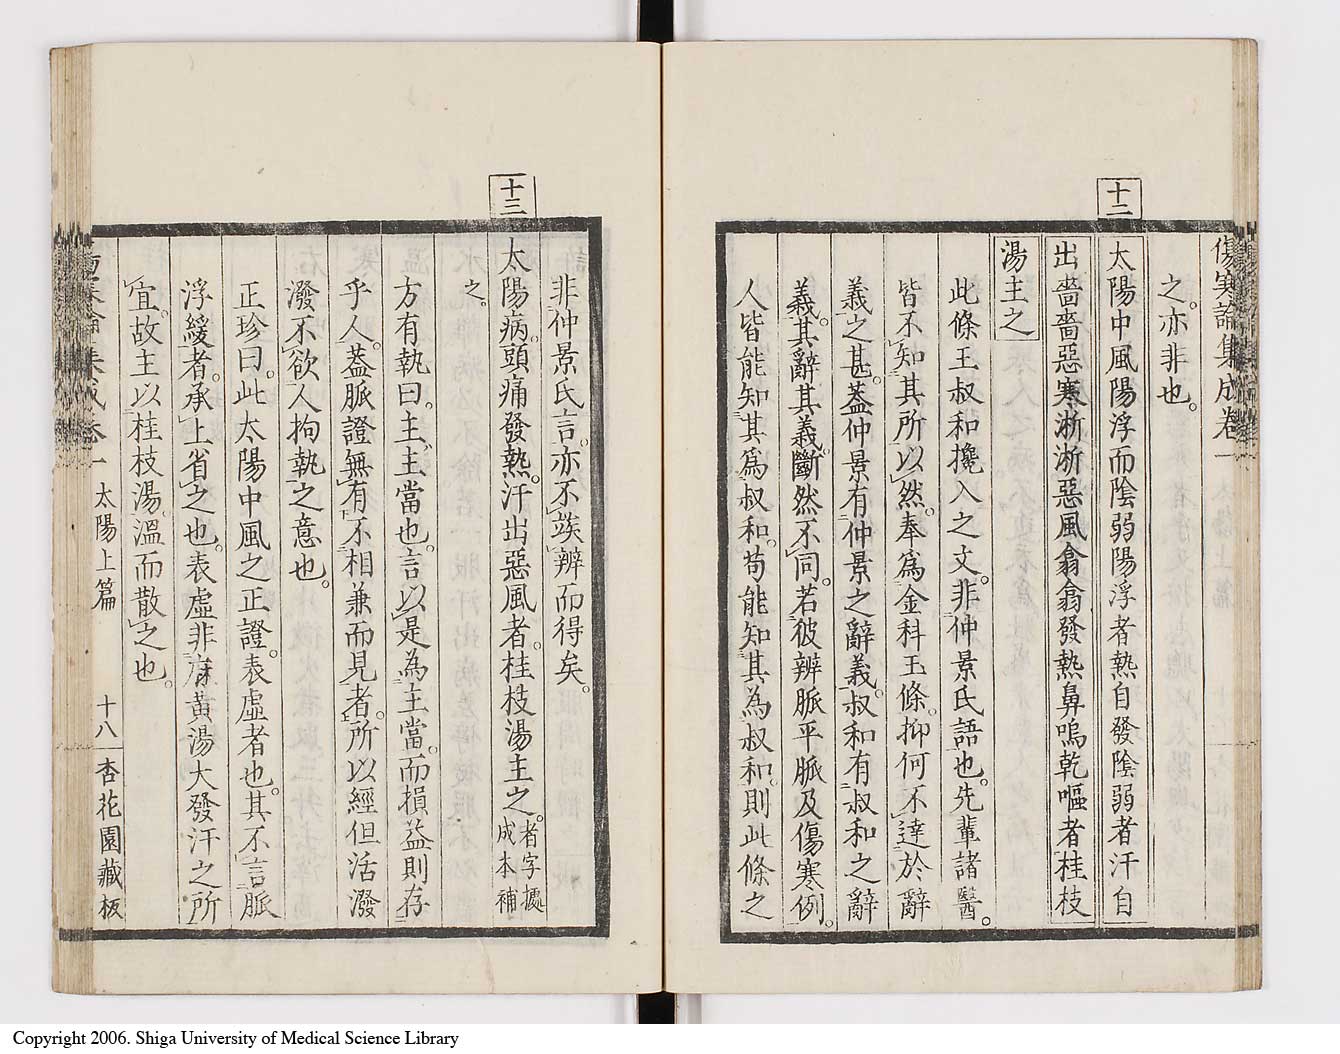 傷寒論集成卷一
之。亦非也。
十二
太陽中風陽浮而陰弱陽浮者熱自發陰弱者汗自
出嗇嗇惡寒淅淅惡風翕翕發熱鼻鳴乾嘔者桂枝
湯主之
此條王叔和攙入之文。非仲景氏語也。先輩諸醫。
皆不知其所以然。奉爲金科玉條。抑何不達於辭
義之甚。葢仲景有仲景之辭義。叔和有叔和之辭
義。其辭其義。斷然不同。若彼辨脈平脈及傷寒例。
人皆能知其爲叔和。苟能知其為叔和。則此條之
非仲景氏言。亦不竢辨而得矣。
十三
太陽病。頭痛發熱。汗出惡風者。桂枝湯主之。者字據成本補
之。
方有執曰。主。主當也。言以是為主當。而損益則存
乎人。葢脈證無有不相兼而見者。所以經但活潑
潑不欲人拘執之意也。
正珍曰。此太陽中風之正證。表虛者也。其不言脈
浮緩者。承上省之也。表虛非麻黄湯大發汗之所
宜。故主以桂枝湯。溫而散之也。
太陽上篇 十八 杏花園藏板
Copyright 2006. Shiga University of Medical Science Library